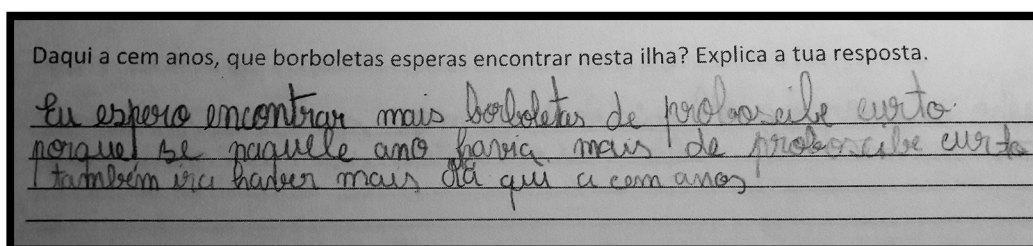 Daqui a cem anos, que borboletas esperas encontrar nesta ilha? Explica a tua resposta.
Eu espero encontrar mais borboletas de proboscibe curto
porque se naquele ano havia mais de proboscibe curto
também ira haver mais da qui a cem anos